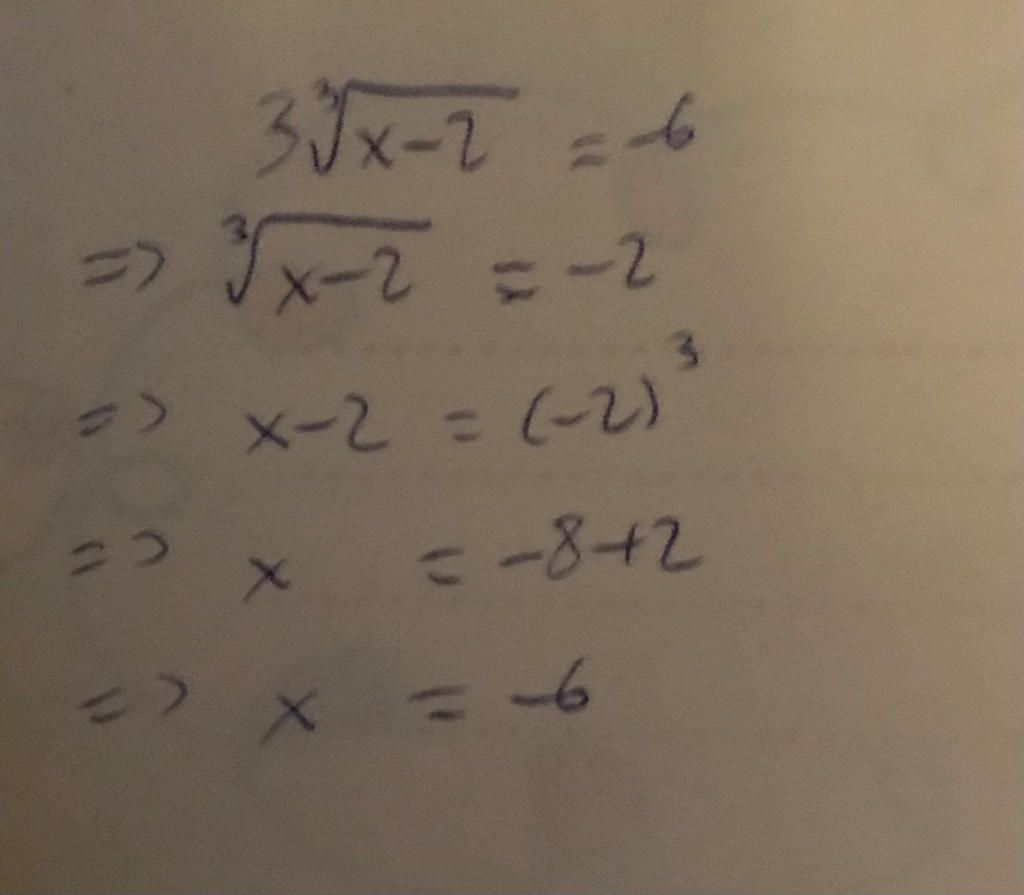 3∛x-2 = -6
=> ∛x-2 = -2
=> x-2 = (-2)³
=> x = -8+2
=> x = -6